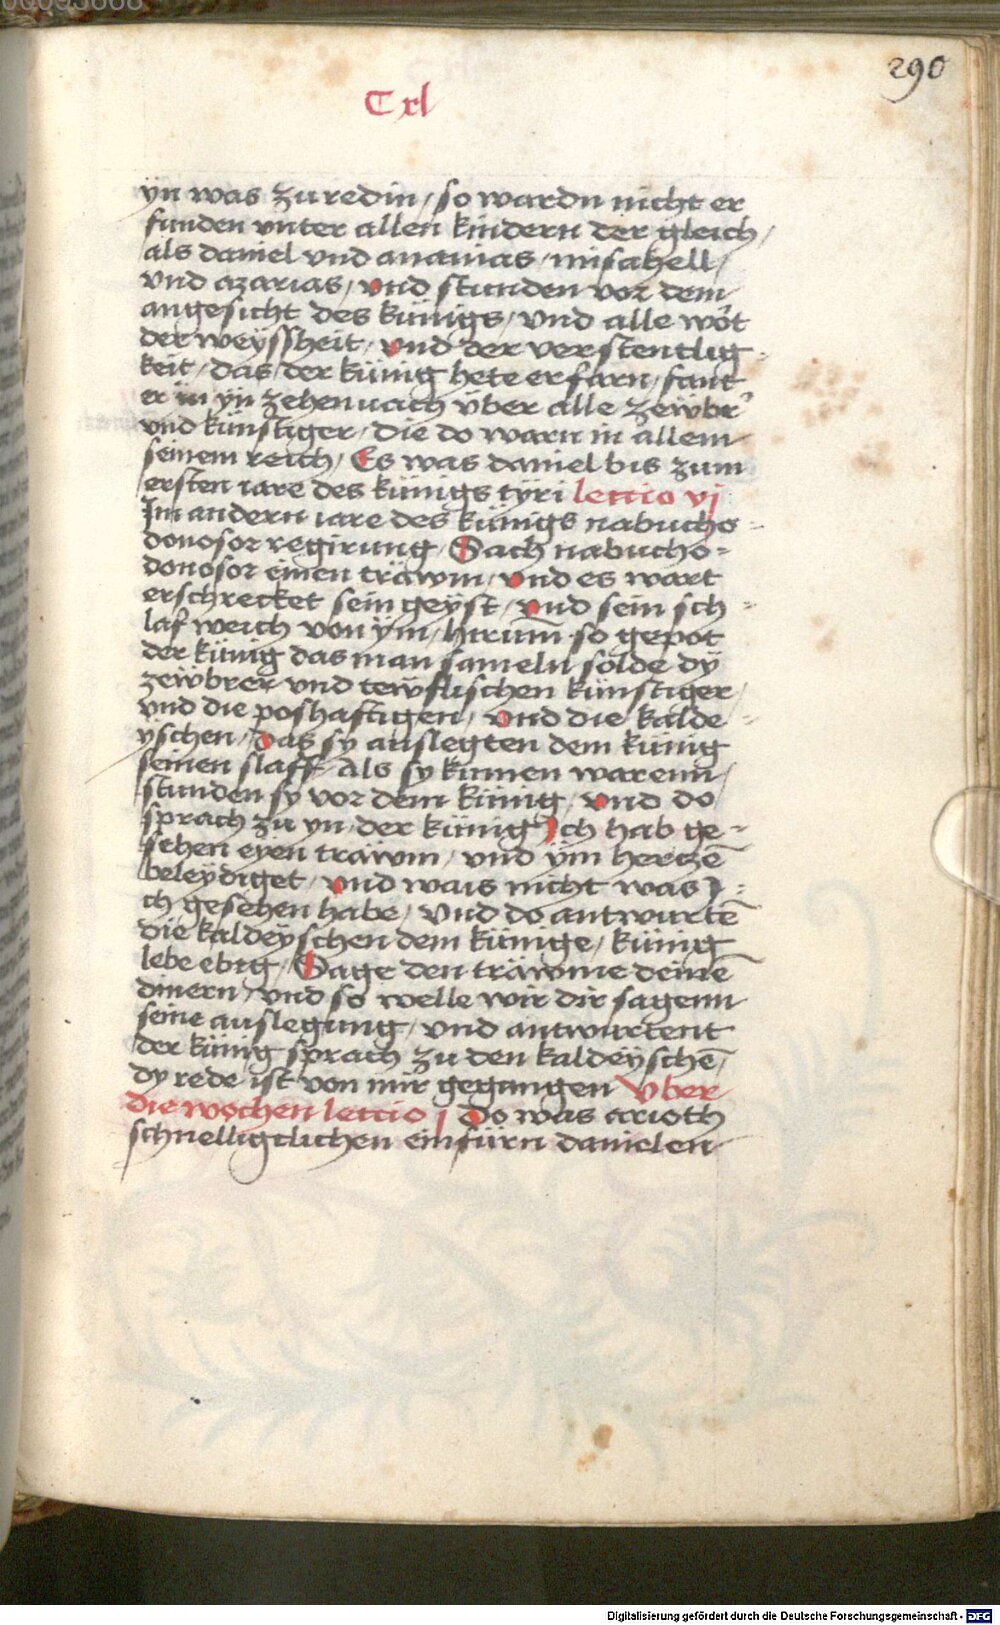 290
C xl
ÿn was zu redin / so wardn nicht er
funden vnter allen kindern der gleich /
als daniel vnd ananias / misahell /
vnd azarias / vnd stunden vor dem
angesicht des künigs / vnd alle wört
der weÿssheit / vnd der verstentlig
keit / das der künig hete erfarn / fant
er in ÿn zehenuach über alle zewbr̕
vnd künstiger / die do warn in allem
seinem reich / Es was daniel bis zum
ersten iare des künigs tÿri lectio vj
Im andern iare des künigs nabucho
donosor regirung / Sach nabucho=
donosor einen träwm / vnd es wart
erschrecket sein geÿst / vnd sein sch=
laf weich von ÿm / hirum̄ so gepot
der künig das man sameln solde dÿ
zewbrer vnd tewflischen künstiger /
vnd die poshaftigen / vnd die kalde=
ÿschen / das sy auslegten dem künig
seinen slaff / Als sy kumen warenn /
stunden sy vor dem künig / vnd do
sprach zu yn / der künig Ich hab ge=
sehen eyen träwm / vnd ÿm hertzē
beleÿdiget / vnd wais nicht was J=
ch gesehen habe / Vnd do antwurtē
die kaldeÿschen dem künige / künig
lebe ebig / Sage den träwme deinē
dinern / vnd so welle wir dir sagenn
seine auslegung / vnd antwurtent
der künig sprach zu den kaldeÿschē /
dy rede ist von mir gegangen Vber
die wochen lectio j Do was arioth
schnelligclichen einfürn danielen
Digitalisierung gefördert durch die Deutsche Forschungsgemeinschaft - DFG